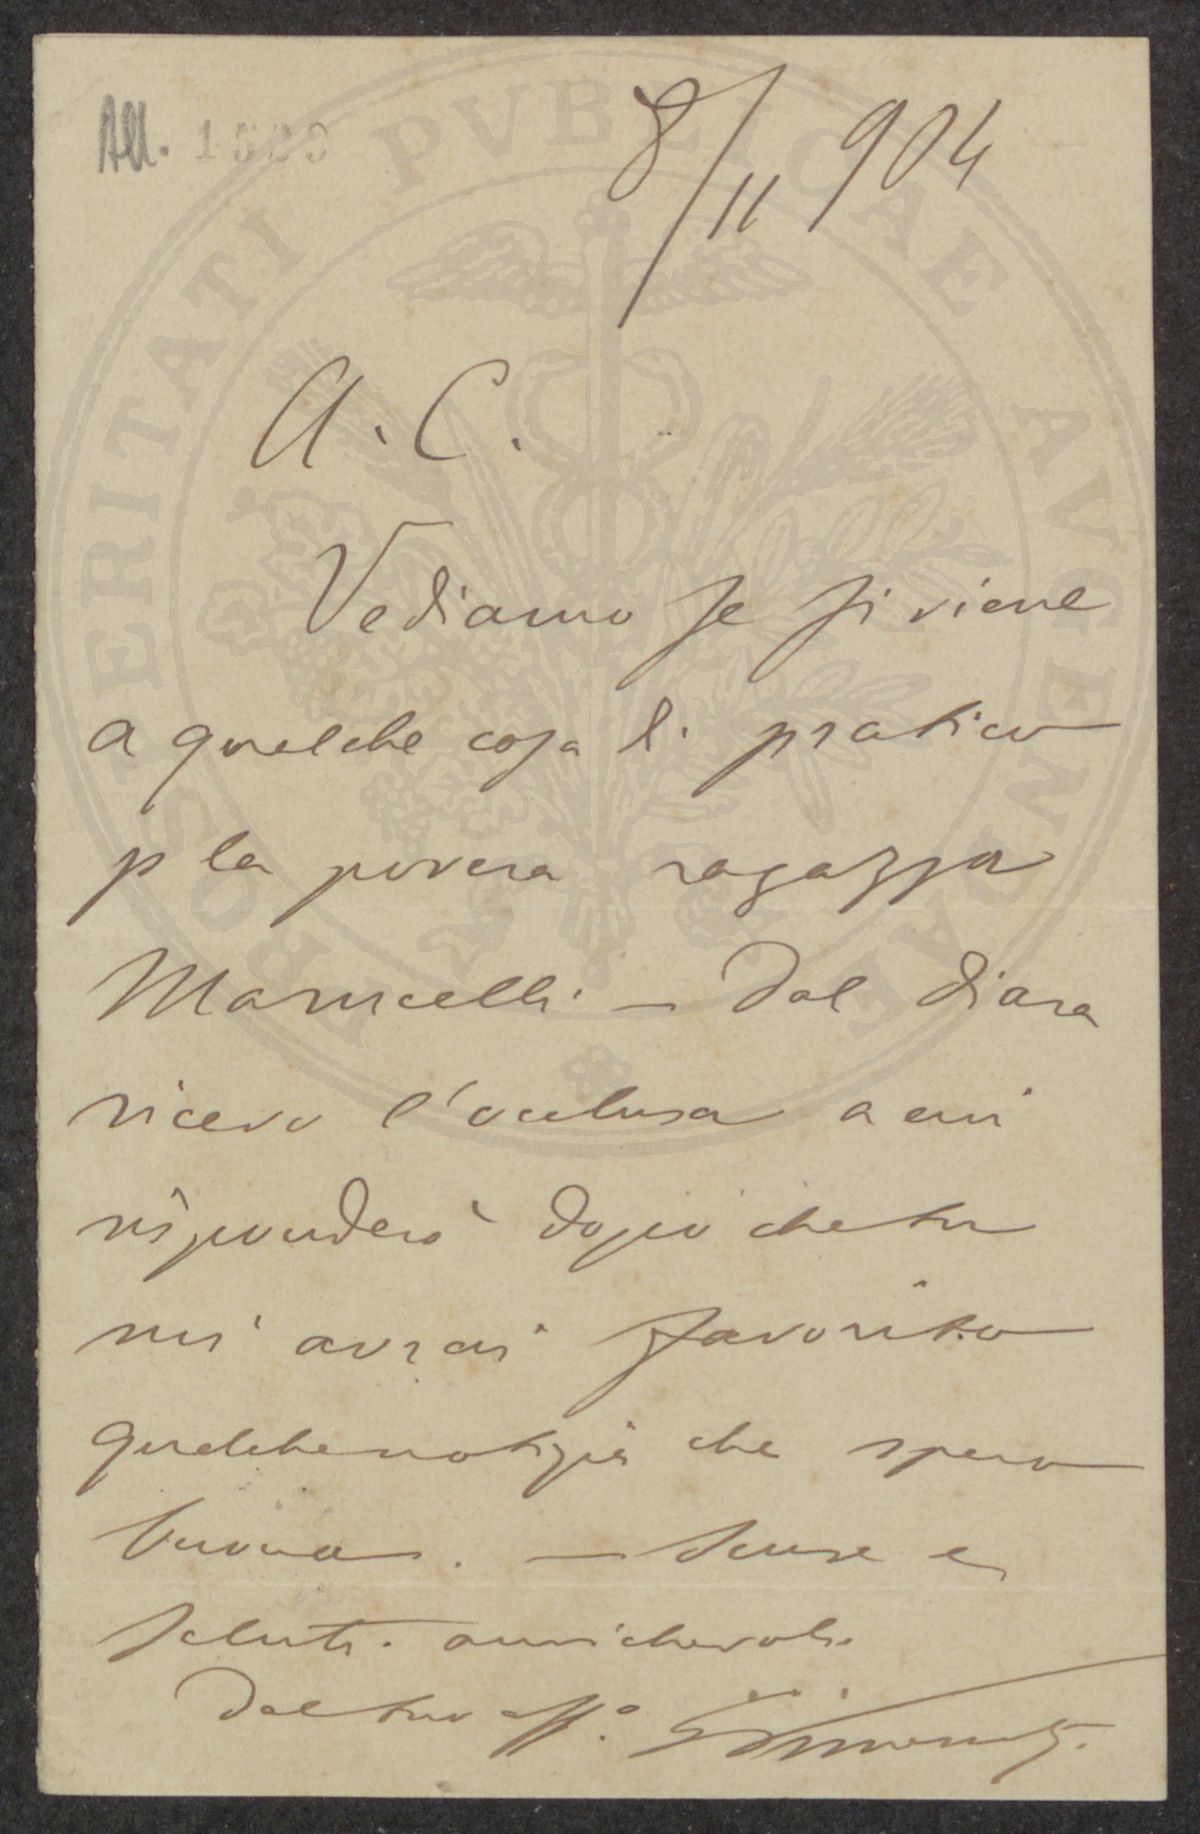 All. 1533
8/11 904
A. C.
Vediamo se si viene
a qualche cosa di pratico
p la povera ragazza
Marucelli - Dal Diana
ricevo l'acclusa a cui
risponderò dopo che tu
mi avrai favorito
qualche notizia che spero
buona. - Scuse e
saluti amichevoli
Dal tuo aff.o
PROSPERITATI PVBLICAE AVGENDAE